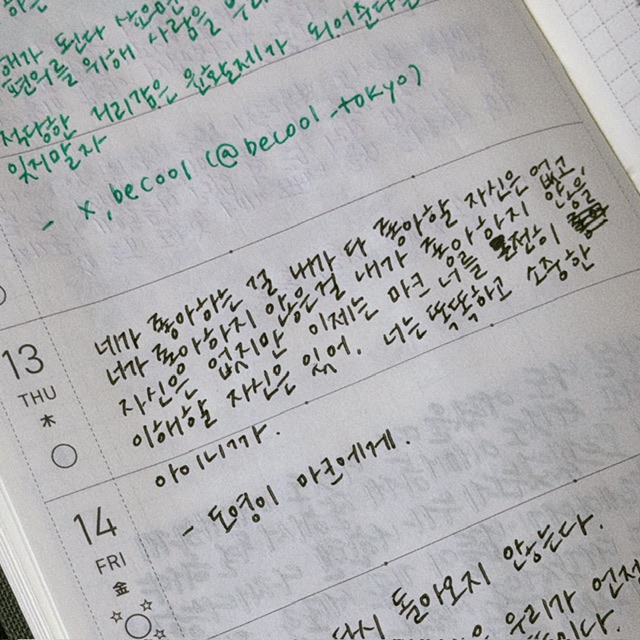 돈다
뭔어를 위해 사람을
적당한 거리감은 윤활제가 되어준다는
잊지말자
- x, be cool (@becool_tokyo)
네가 좋아하는 걸 내가 다 좋아할 자신은 없고,
너가 좋아하지 않은걸 내가 좋아하지 않을
자신은 없지만 이제는 마크 너를 온전히
이해할 자신은 있어. 너는 똑똑하고 소중한
아이니까.
- 도영이 마크에게.
13
THU
木
14
FRI
金
다시 돌아오지 않는다.
우리가